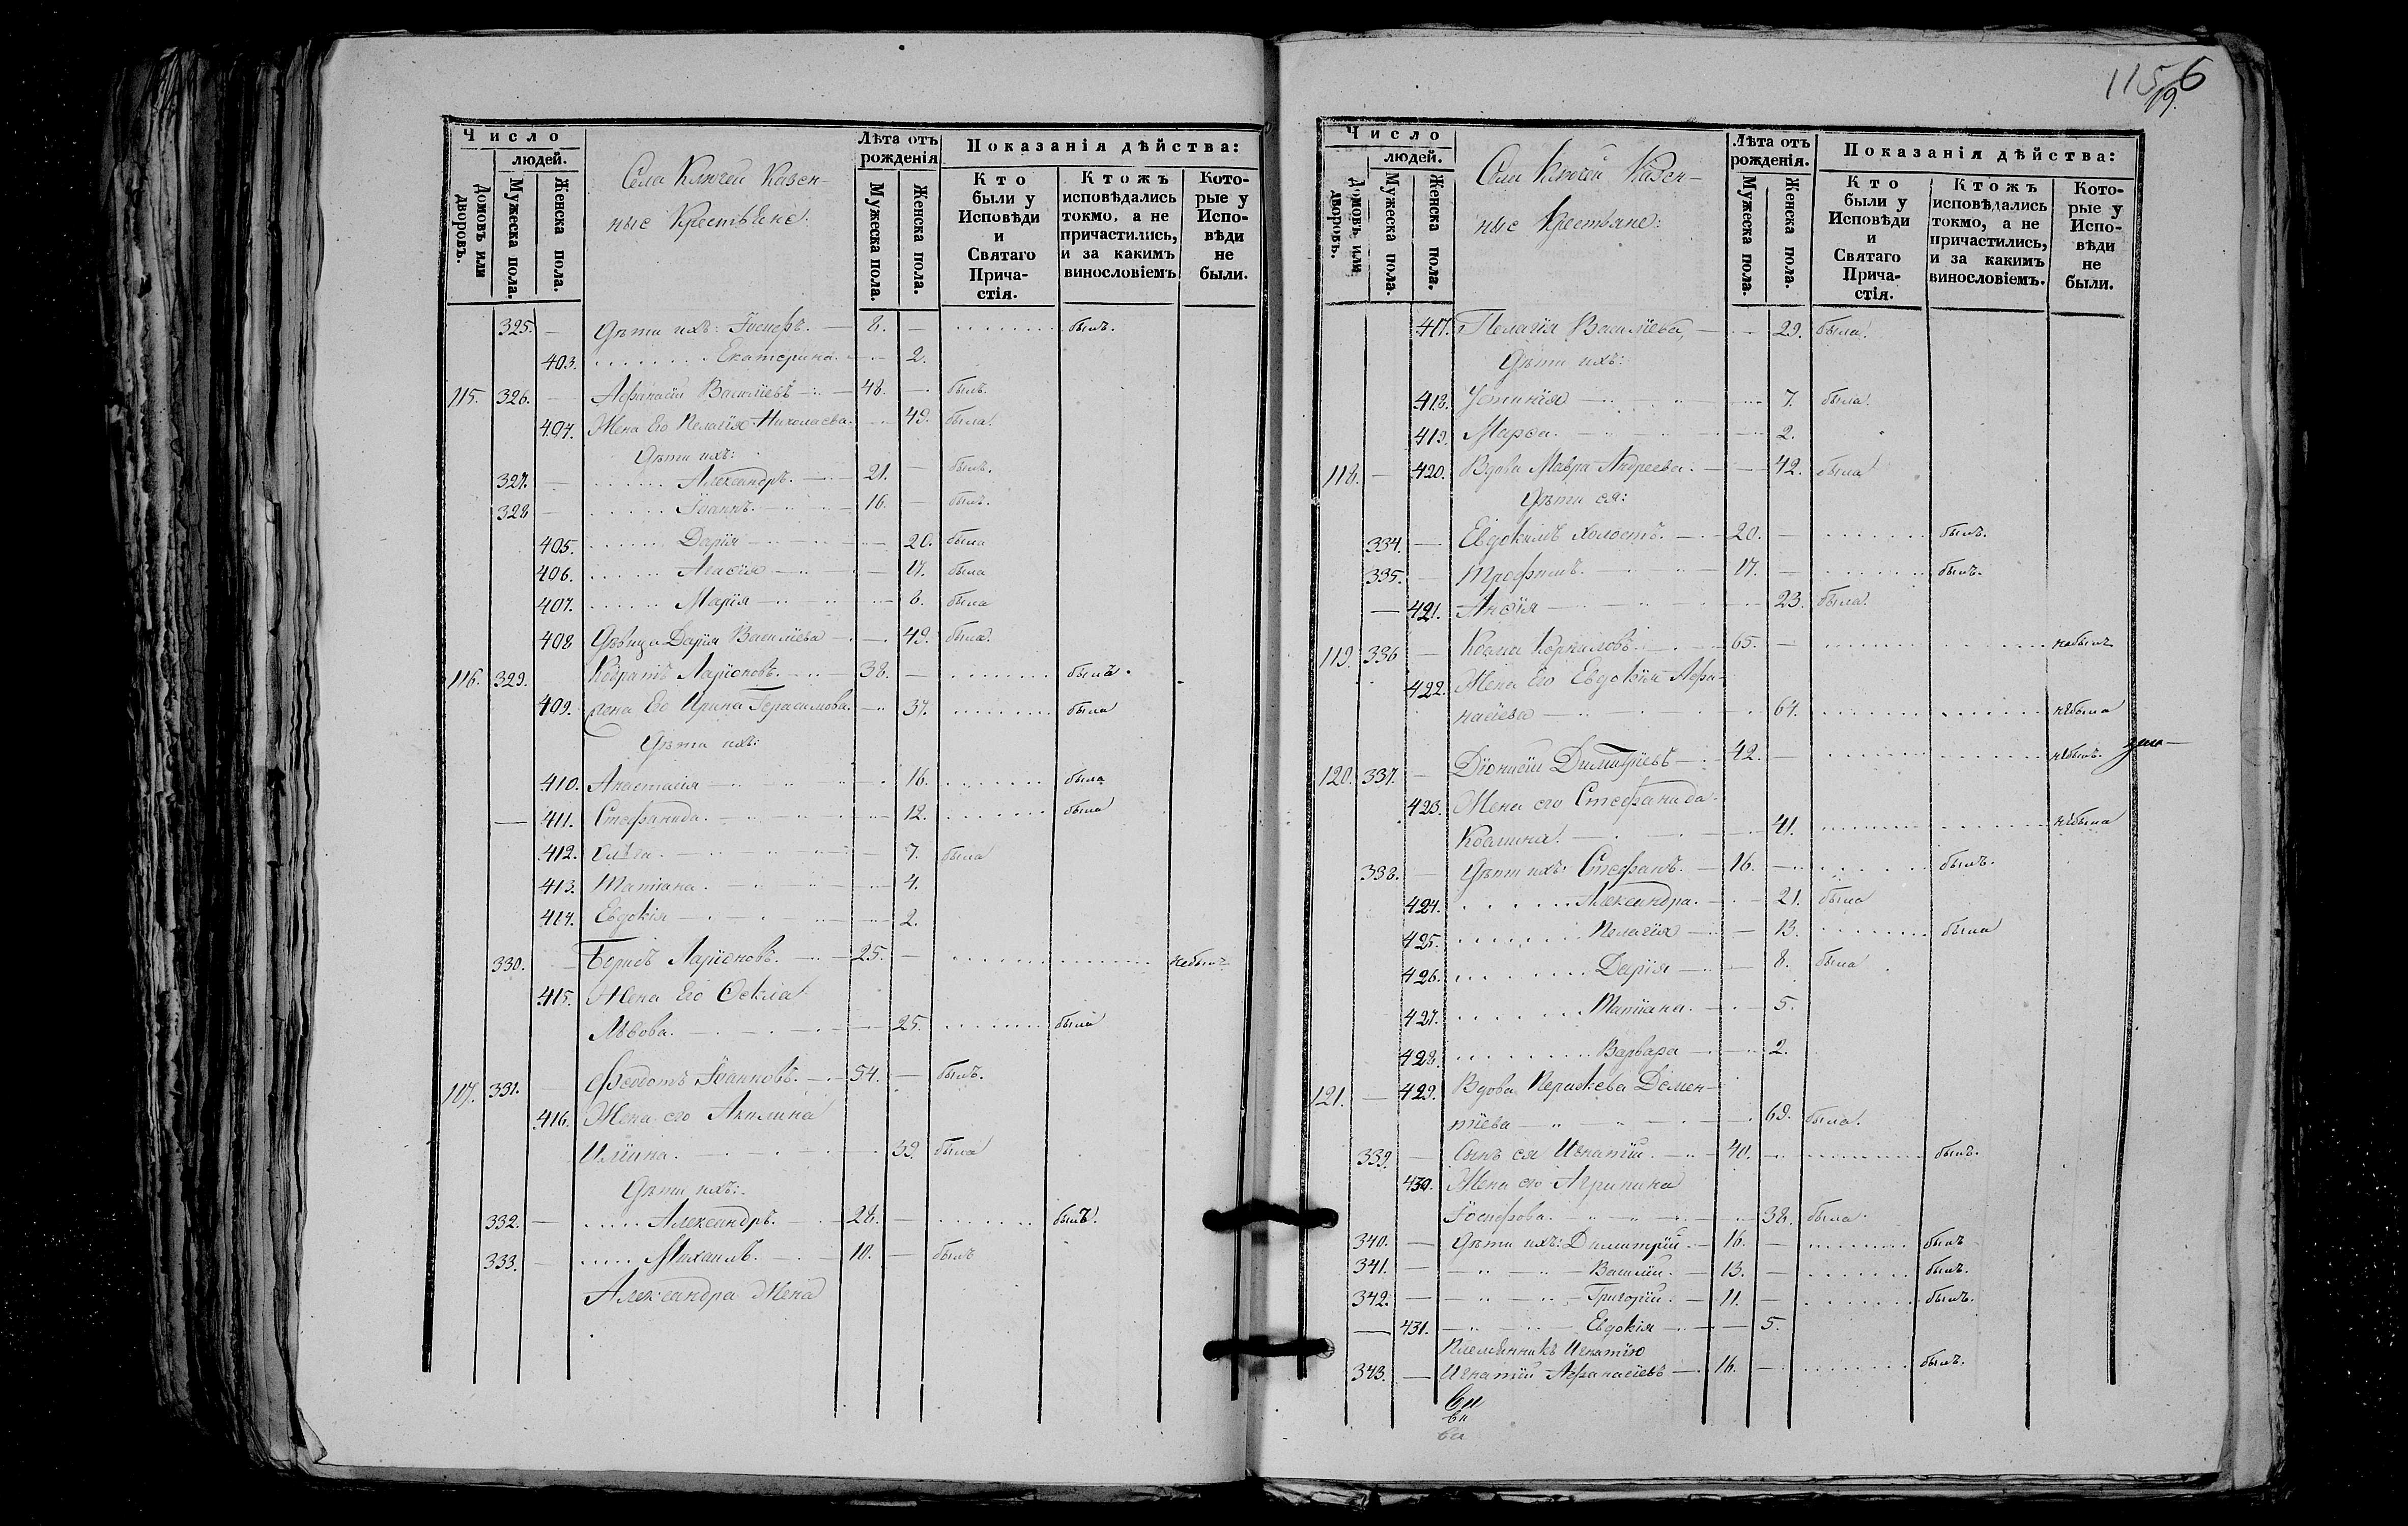 Число
людей.
Домовъ или дворовъ.
Мужеска пола.
Женска пола.
Села Ключей Казен-
ные Крестьяне:
Лѣта отъ рожденія
Мужеска пола.
Женска пола.
Показанія дѣйства:
Кто были у Исповѣди и Святаго Прича-стія.
Ктожъ исповѣдались токмо, а не причастились, и за какимъ винословіемъ
Кото-рые у Испо-вѣди не были.
325. — Дѣти ихъ: Іосифъ. — 8. — былъ.
403. Екатерина. 2.
115. 326. — Афанасій Васильевъ — 48. — былъ.
404. Жена Его Пелагія Николаева. — 49. была.
Дѣти ихъ:
327. — Александръ. — 21. — былъ.
328 — Іоаннъ. — 16. — былъ.
405. Дарія — 20. была
406. — 17. была
407. Марія — 8. была
408 Дѣвица Дарія Васильева — 49. была.
116. 329. Ларіоновъ. — 38. — былъ.
409. жена Его Ирина Герасимова. — 37. была
Дѣти ихъ:
410. Анастасія — 16. была
411. Стефанида. — 12. была
412. — 7. была
413. Татіана. — 4.
414. Евдокія — 2.
330. — Борисъ Ларіоновъ. — 25. — небылъ
415. Жена Его Ѳекла
Львова. — 25. была
107. 331. — Ѳеодотъ Іоанновъ. — 54. — былъ.
416. Жена его Акилина
Ильина. — 39. была
Дѣти ихъ:
332. — Александръ. — 24. — былъ.
333. — Михаилъ. — 10. — былъ
Александра Жена
1156
19.
Число
людей.
Домовъ или дворовъ.
Мужеска пола.
Женска пола.
Села Ключей Казен-
ные Крестьяне:
Лѣта отъ рожденія.
Мужеска пола.
Женска пола.
Показанія дѣйства:
Кто были у Исповѣди и Святаго Прича-стія.
Ктожъ исповѣдались токмо, а не причастились, и за какимъ винословіемъ.
Кото-рые у Испо-вѣди не были.
417. Пелагія Васильева, — 29. была.
Дѣти ихъ:
418. Устинія — 7. была.
419. Марѳа. — 2.
118. — 420. Вдова Мавра Андреева. — 42. была
Дѣти ея:
334. — Евдокимъ холостъ. — 20. — былъ.
335. — Трофимъ. — 17. — былъ.
— 421. — 23. была.
119. 336 — Козма Корниловъ. — 65. — небылъ
422. Жена Его Евдокія Афа-
насіева — 64. небыла
120. 337. — Діонисій Димитріевъ — 42. — небылъ.
423. Жена его Стефанида
Козмина. — 41. небыла
338. — Дѣти ихъ: Стефанъ. — 16. — былъ.
424. Александра. — 21. была
425. Пелагія — 13. была
426. Дарія — 8. была
427. Татіана. — 5.
428. Варвара — 2.
121. — 429. Вдова Параскева Демен-
тіева — 69. была.
339. — Сынъ ея Игнатій. — 40. — былъ.
430. Жена его Агрипина
Іосифова. — 38. была.
340. — Дѣти ихъ: Димитрій. — 16. — былъ
341. — Василій. — 13. — былъ.
342. — Григорій. — 11. — былъ.
— 431. Евдокія — 5.
Племянникъ Игнатію
343. — Игнатій Афанасіевъ — 16. — былъ.